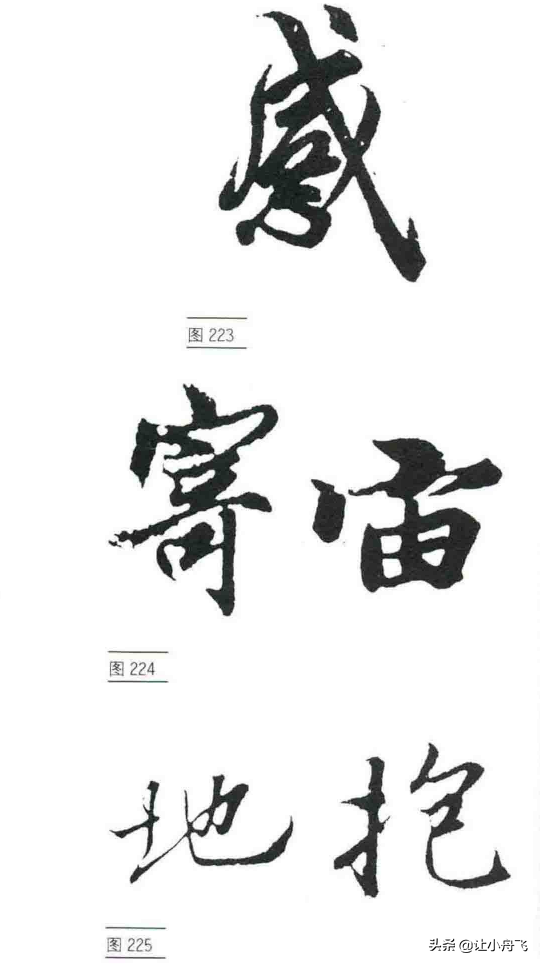 感
图 223
寄 宙
图 224
地 抱
图 225
头条 @让小舟飞